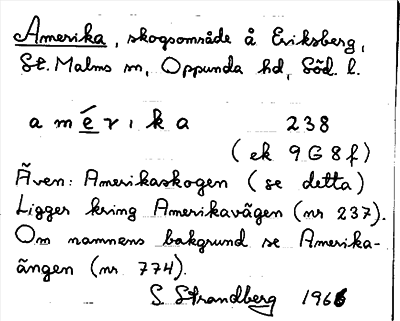 Amerika, skogsområde å Eriksberg,
St. Malms sn, Oppunda hd, Söd. l.
a m é r ı k a 238
(ek 9G8f)
Även: Amerikaskogen (se detta)
Ligger kring Amerikavägen (nr 237).
Om namnens bakgrund se Amerika-
ängen (nr 774).
S. Strandberg 1966